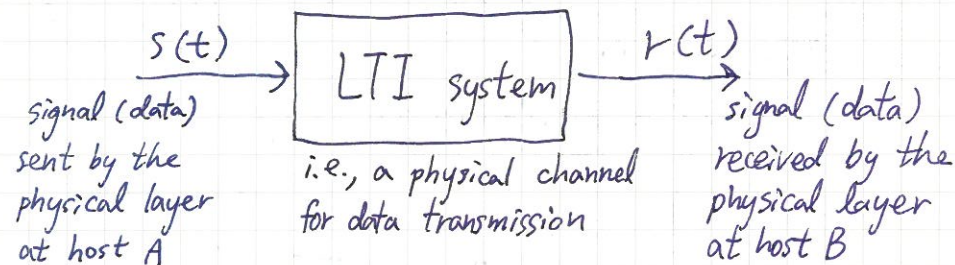 s(t)
LTI system
r(t)
signal (data)
sent by the
physical layer
at host A
i.e., a physical channel
for data transmission
signal (data)
received by the
physical layer
at host B